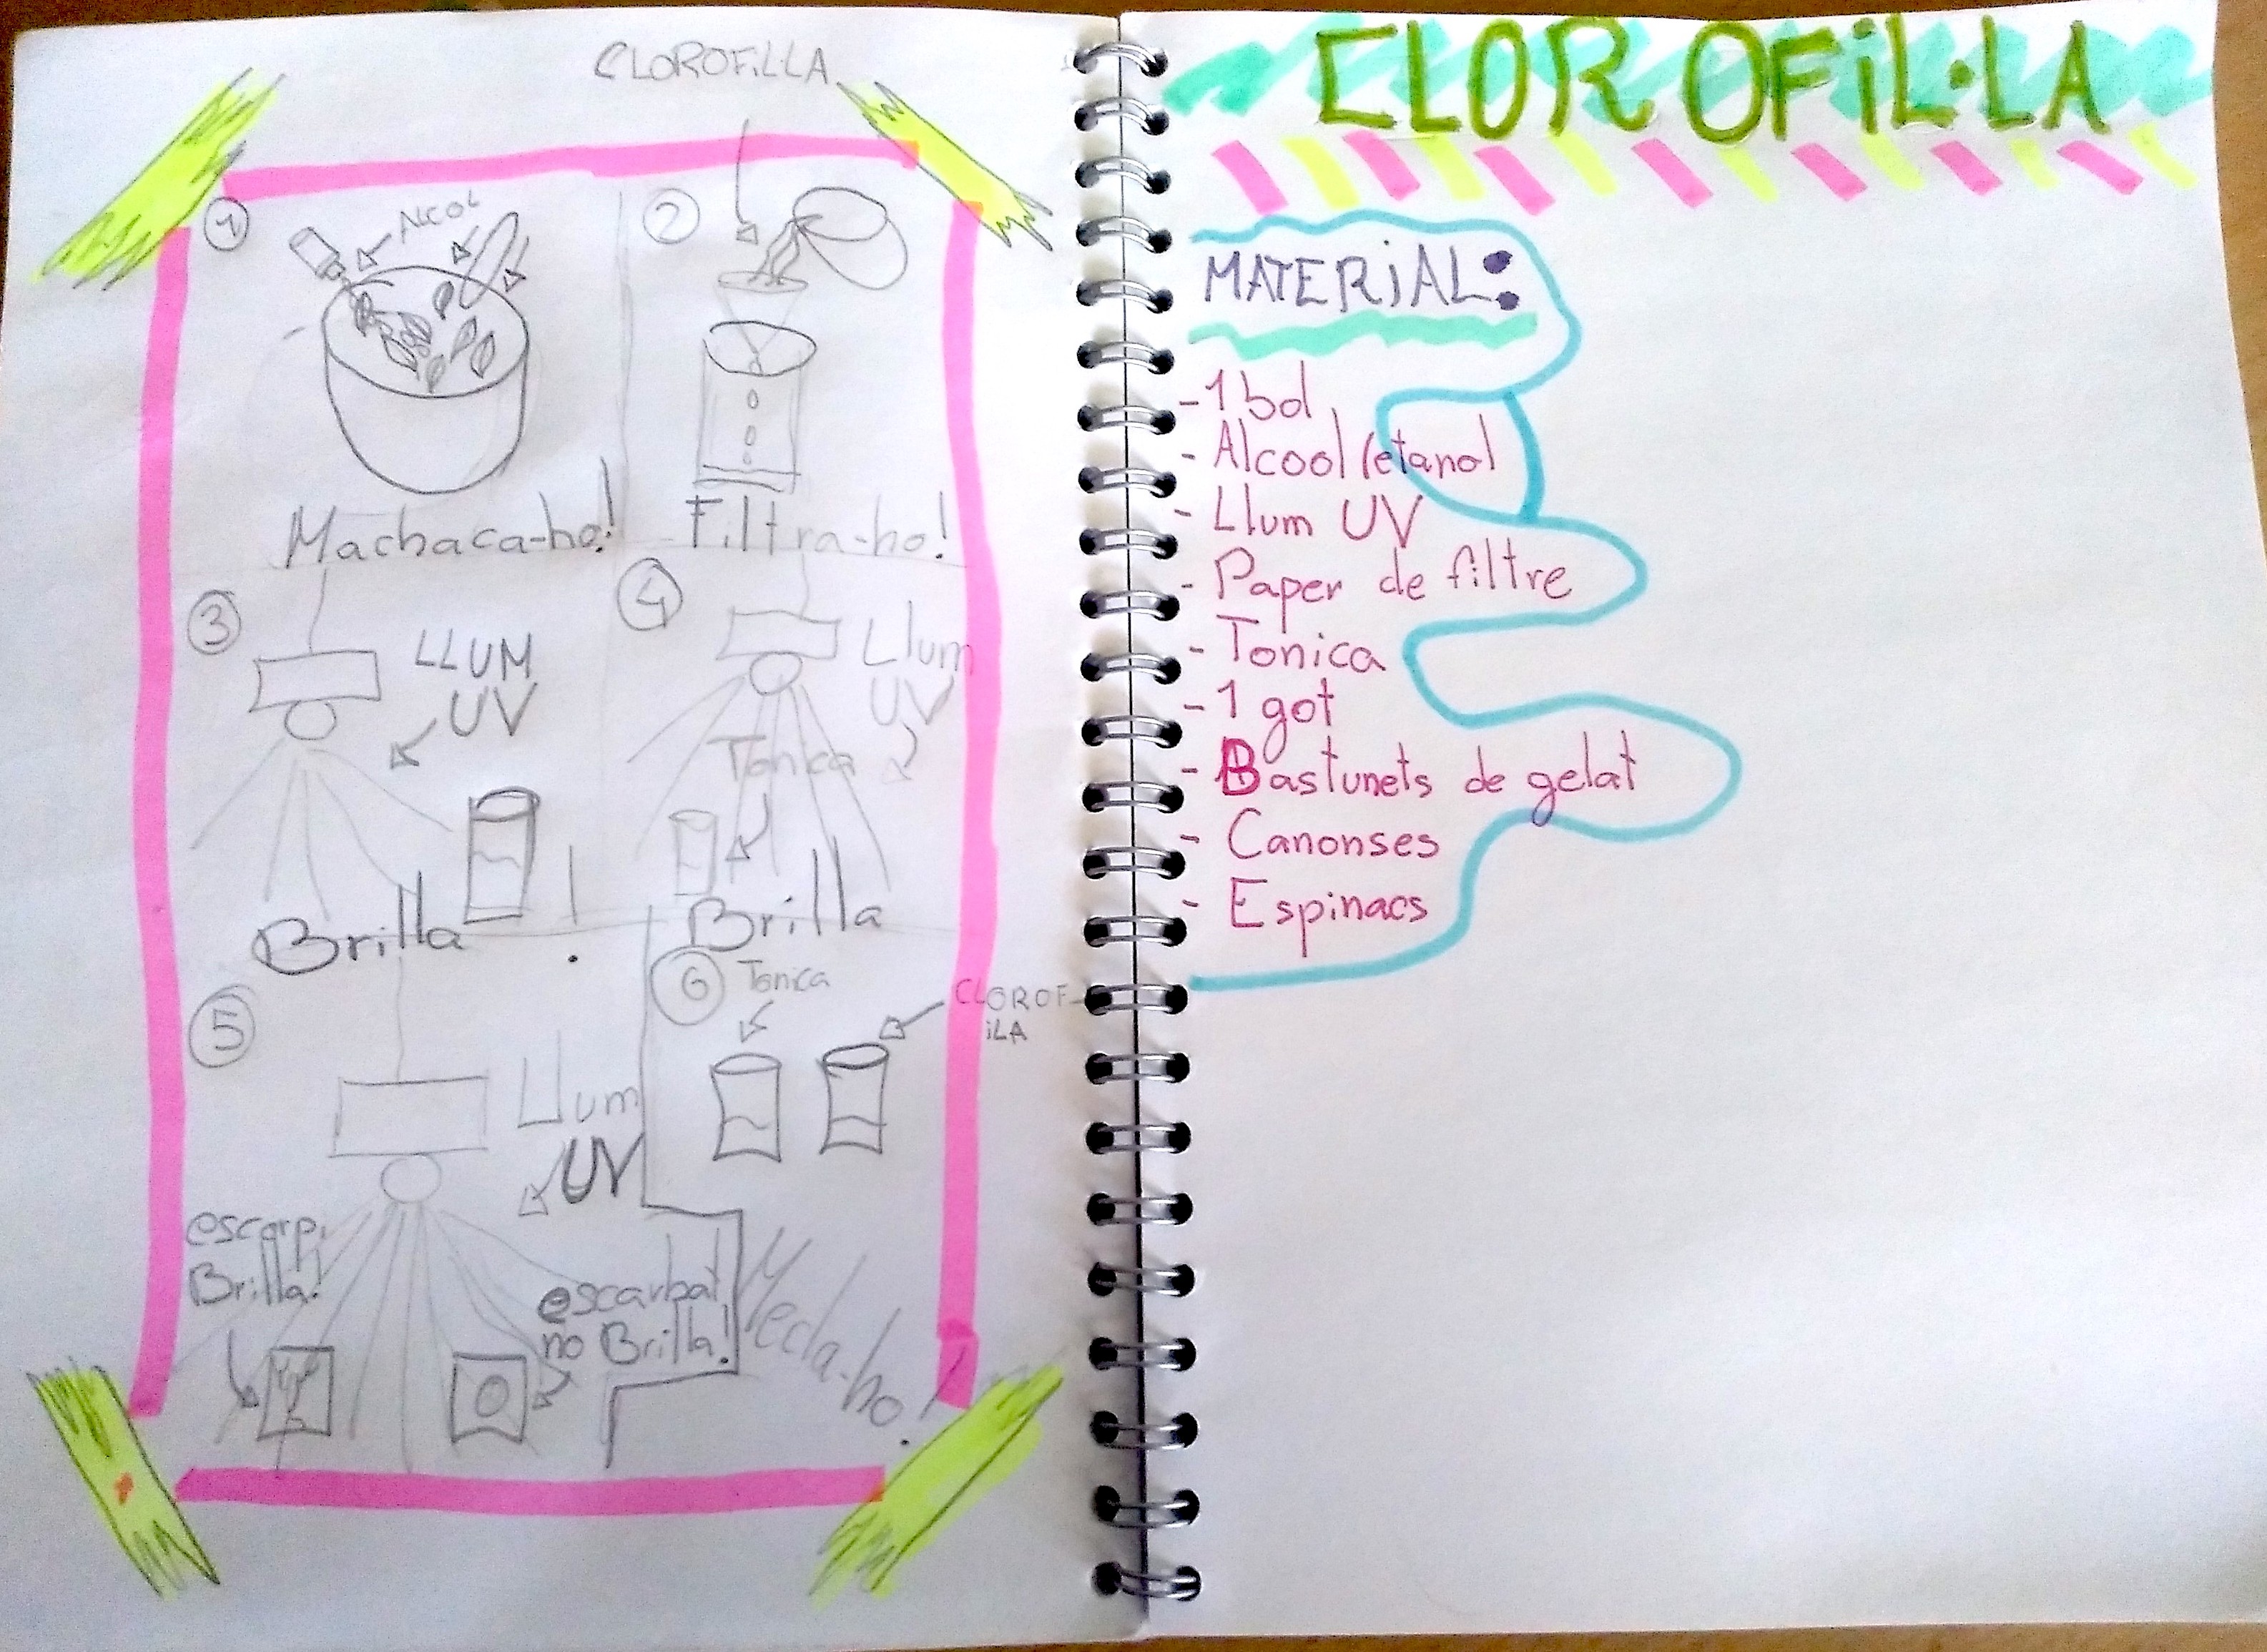 CLOROFIL·LA
1
ALCOL
Machaca-ho!
2
Filtra-ho!
3
LLUM
UV
Brilla!
4
Llum
UV
Tonica
Brilla
5
Llum
UV
escorpi
Brilla!
escarbat
no Brilla!
6
Tonica
CLOROF-
iLA
Mecla-ho!
CLOROFiL·LA
MATERiAL:
- 1 bol
- Alcool (etanol
- Llum UV
- Paper de filtre
- Tonica
- 1 got
- Bastunets de gelat
- Canonses
- Espinacs